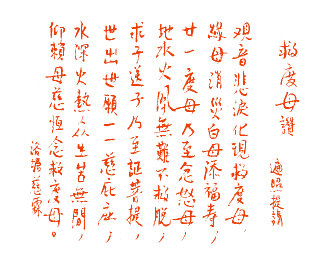 救度母讚
遍照提講
觀音悲淚化現救度母，
綠母消災白母添福壽，
廿一度母乃至忿怒母，
地水火風無難不救脫，
求子送子乃至証菩提，
世出世願一一慈庇之，
水深火熱眾生苦無間，
仰賴母慈恆念救度母。